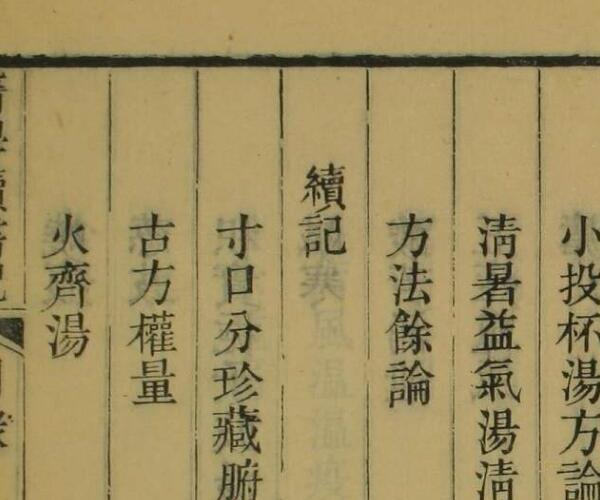 小投杯湯方論
淸暑益氣湯淸
方法餘論
續記
寸口分珍藏腑
古方權量
火齊湯